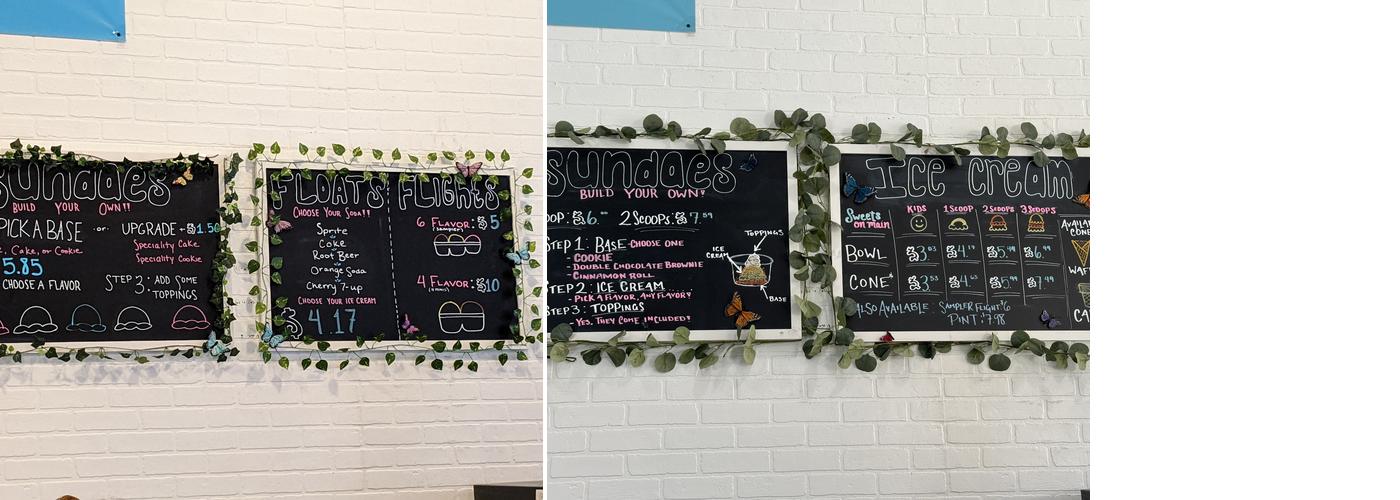 Sundaes
BUILD YOUR OWN!!
PICK A BASE or UPGRADE +$1.50
Cake, or Cookie
Speciality Cake
Speciality Cookie
5.85
CHOOSE A FLAVOR
STEP 3: ADD SOME
TOPPINGS
FLOATS
CHOOSE YOUR SODA!!
Sprite
Coke
Root Beer
Orange Soda
Cherry 7-up
CHOOSE YOUR ICE CREAM
$4.17
FLIGHTS
6 FLAVOR: $5
(sampler)
4 FLAVOR: $10
Sundaes
BUILD YOUR OWN!
2 SCOOPS: $7.59
STEP 1: BASE - CHOOSE ONE
- COOKIE
- DOUBLE CHOCOLATE BROWNIE
- CINNAMON ROLL
STEP 2: ICE CREAM
- PICK A FLAVOR, ANY FLAVOR!
STEP 3: TOPPINGS
- YES, THEY COME INCLUDED!
TOPPINGS
ICE
CREAM
BASE
Ice Cream
Sweets
on main
KIDS 1 SCOOP 2 SCOOPS 3 SCOOPS
BOWL
CONE
ALSO AVAILABLE: SAMPLER FLIGHT $6
PINT $7.98